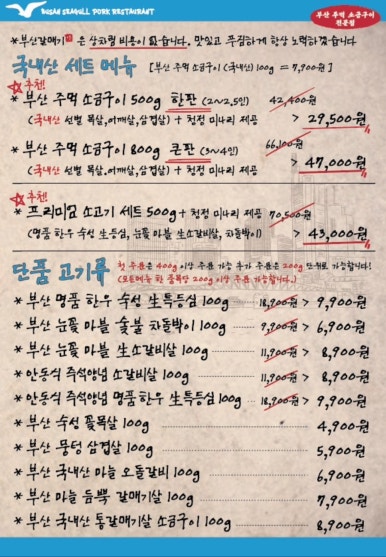 BUSAN SEAGULL PORK RESTAURANT
부산 주먹 소금구이
전문점
*부산갈매기는 은 상차림 비용이 없습니다. 맛있고 푸짐하게 항상 노력하겠습니다
국내산 세트 메뉴 [부산 주먹 소금구이 (국내산) 100g = 7,900원]
추천!
* 부산 주먹 소금구이 500g 한판 (2~2.5인) 42,400원
(국내산 선별 목살,어깨살,삼겹살) + 청정 미나리 제공 > 29,500원
* 부산 주먹 소금구이 800g 큰판 (3~4인) 66,100원
(국내산 선별 목살,어깨살,삼겹살) + 청정 미나리 제공 > 47,000원
추천!
* 프리미엄 소고기 세트 500g + 청정 미나리 제공 70,500원
(명품 한우 숙성 생등심, 눈꽃 마블 생소갈비살, 차돌박이) > 43,000원
단품 고기류 첫 주문은 400g 이상 주문 가능 추가 주문은 200g 단위로 가능합니다!
(모든메뉴 한 품목당 200g 이상 주문 가능)
* 부산 명품 한우 숙성 生특등심 100g 18,900원 > 9,900원
* 부산 눈꽃 마블 숯불 차돌박이 100g 9,900원 > 6,900원
* 부산 눈꽃 마블 生소갈비살 100g 11,900원 > 8,900원
* 안동식 즉석양념 소갈비살 100g 11,900원 > 8,900원
* 안동식 즉석양념 명품한우 生특등심 100g 18,900원 > 9,900원
* 부산 숙성 꽃목살 100g 4,900원
* 부산 뭉텅 삼겹살 100g 5,900원
* 부산 국내산 마늘 오돌갈비 100g 6,900원
* 부산 마늘 듬뿍 갈매기살 100g 7,900원
* 부산 국내산 통갈매기살 소금구이 100g 8,900원